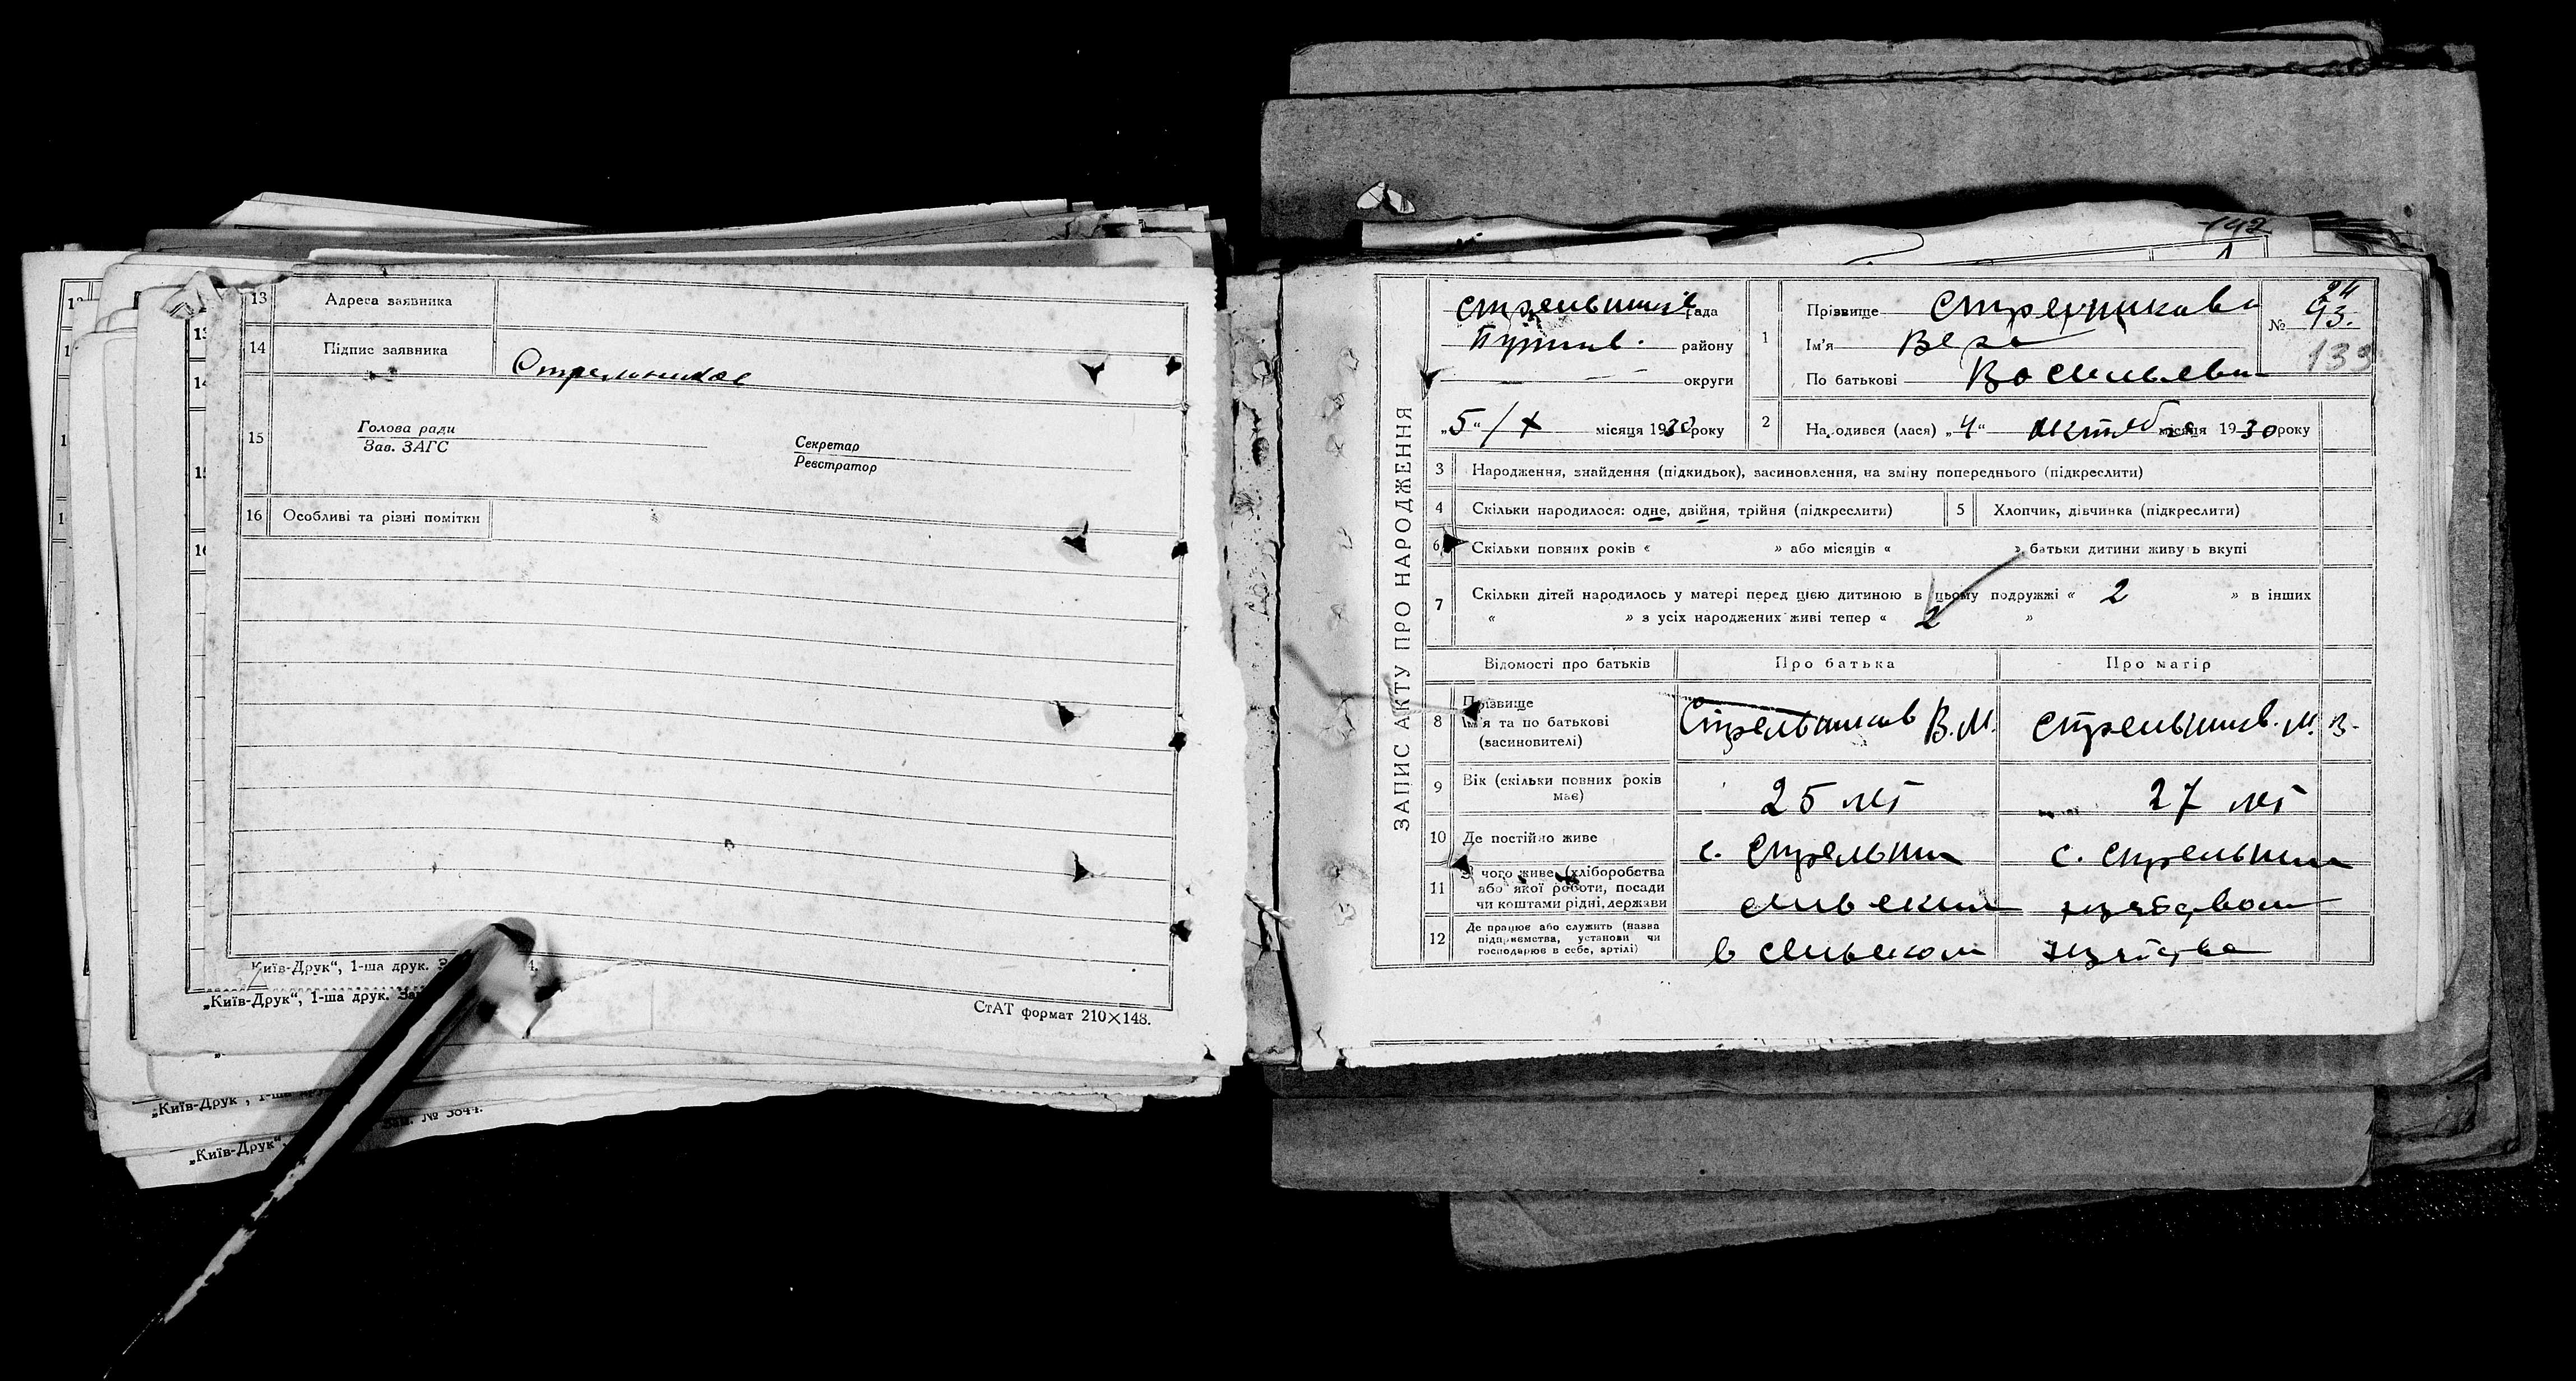 13 Адреса заявника
14 Підпис заявника Стрельников
15 Голова ради
Зав. ЗАГС
Секретар
Реєстратор
16 Особливі та різні помітки
Київ-Друк“, 1-ша друк.
„Київ-Друк“, 1-ша друк. Зам
СтАТ формат 210×148.
„Київ-Друк“,
Зам. № 3844.
„Київ-Друк“,
192
ЗАПИС АКТУ ПРО НАРОДЖЕННЯ
рада
Путив. району
округи
„5“ / X місяця 1930 року
1 Прізвище Стрельникова
Ім'я Вера
По батькові Васильевна
24
№ 93.
133
2 Народився (лася) „4“ октября місяця 1930 року
3 Народження, знайдення (підкидьок), засиновлення, на зміну попереднього (підкреслити)
4 Скільки народилося: одне, двійня, трійня (підкреслити)
5 Хлопчик, дівчинка (підкреслити)
6 Скільки повних років « » або місяців « » батьки дитини живуть вкупі
7 Скільки дітей народилось у матері перед цією дитиною в цьому подружжі « 2 » в інших
« » з усіх народжених живі тепер « 2 »
Відомості про батьків Про батька Про матір
8 Прізвище
Ім'я та по батькові
(засиновителі)
Стрельников В.М. Стрельников. М. В.
9 Вік (скільки повних років
має)
25 лет 27 лет
10 Де постійно живе
11 З чого живе (хліборобства
або якої роботи, посади
чи коштами рідні, держави
12 Де працює або служить (назва
підприємства, установи чи
господарює в себе, артілі)